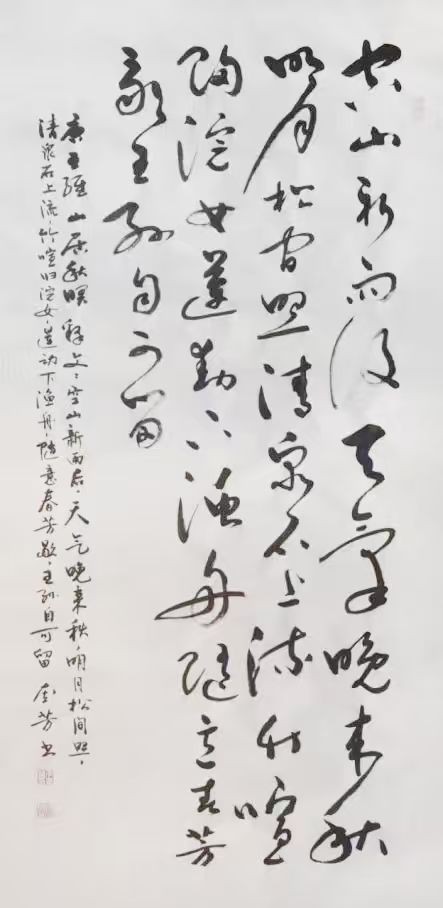 空山新雨後天氣晚來秋
明月松間照清泉石上流竹喧
歸浣女蓮動下漁舟隨意春芳
歇王孫自可留
唐王維山居秋暝释文：空山新雨后，天气晚来秋，明月松间照，
清泉石上流，竹喧归浣女，莲动下渔舟，随意春芳歇，王孙自可留 芳书